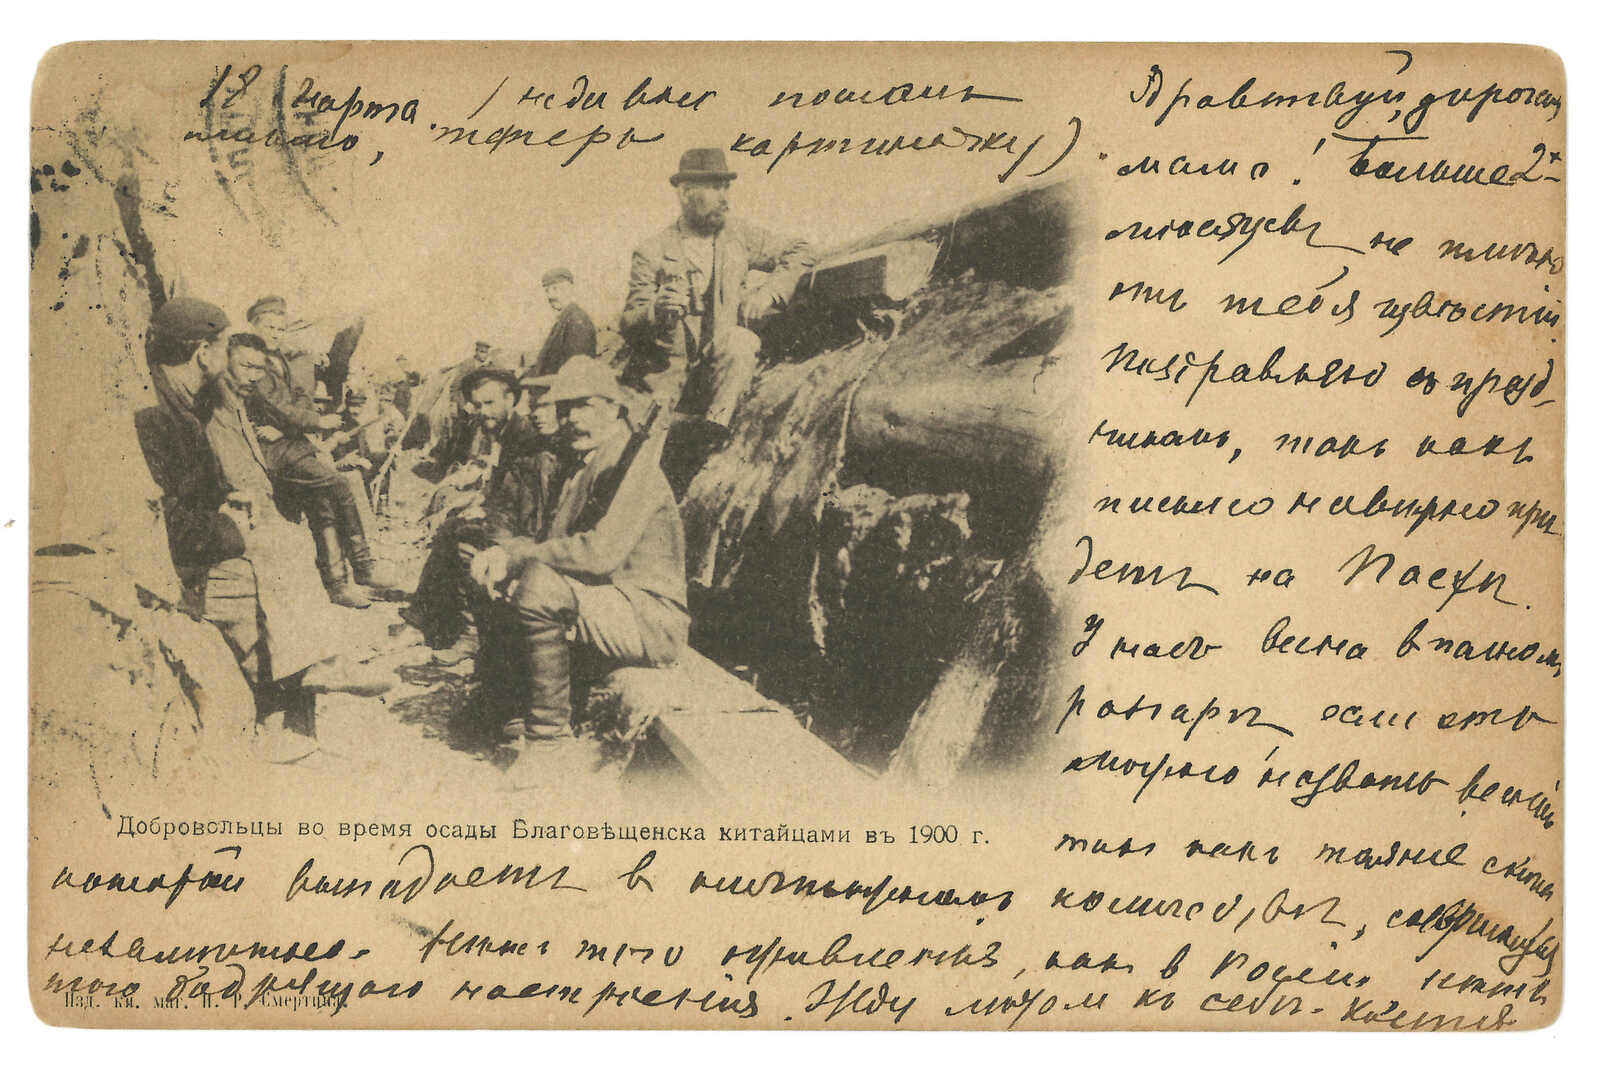 18 марта. (недавно послалъ
письмо, теперь картинку)
Здравствуй, дорогая
мама! Больше 2х
мѣсяцевъ не имѣю
отъ тебя извѣстій.
Поздравляю съ празд-
никомъ, такъ какъ
письмо навѣрно при
детъ на Пасху.
У насъ весна в полномъ
разгарѣ если это
можно назвать весной
такъ какъ таяніе снѣга
Добровольцы во время осады Благовѣщенска китайцами въ 1900 г.
который выпадаетъ в ничтожномъ количествѣ, совершенно
незамѣтно. Нѣтъ того оживленія, какъ в Россіи нѣтъ
того бодрящаго настроенія. Жду лѣтом къ себѣ. Костя
Изд. кн. маг. П. Р. Смертина